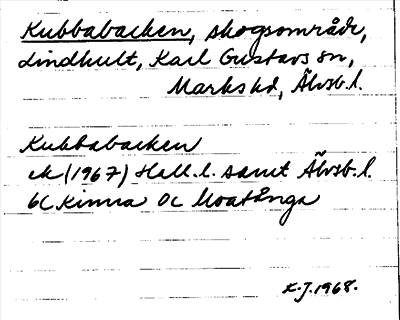 Kubbabacken, skogsområde,
Lindhult, Karl Gustavs sn,
Marks hd, Älvsb.l.
Kubbabacken
ek (1967) Hall.l. samt Älvsb.l.
6C Kinna 0c
K.J. 1968.